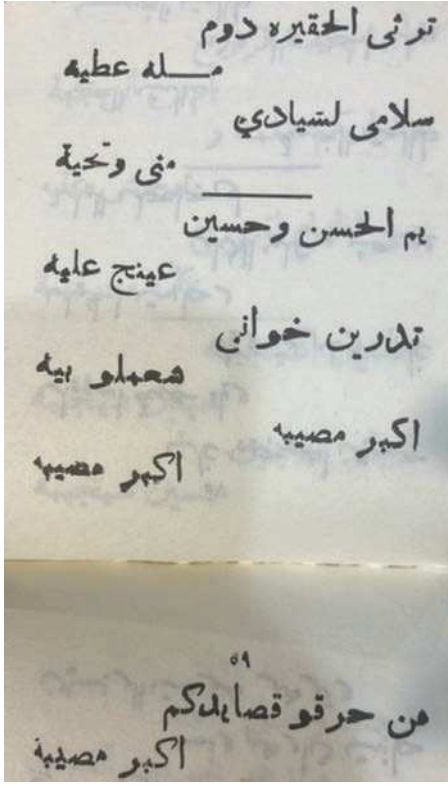 ترثى الحقيره دوم
مــله عطيه
سلامى لسيادي
منى وتحية
يم الحسن وحسين
عينج عليه
تدرين خوانى
شعملو بيه
اكبر مصيبه
اكبر مصيبه
٥٩
من حرقو قصايدكم
اكبر مصيبة